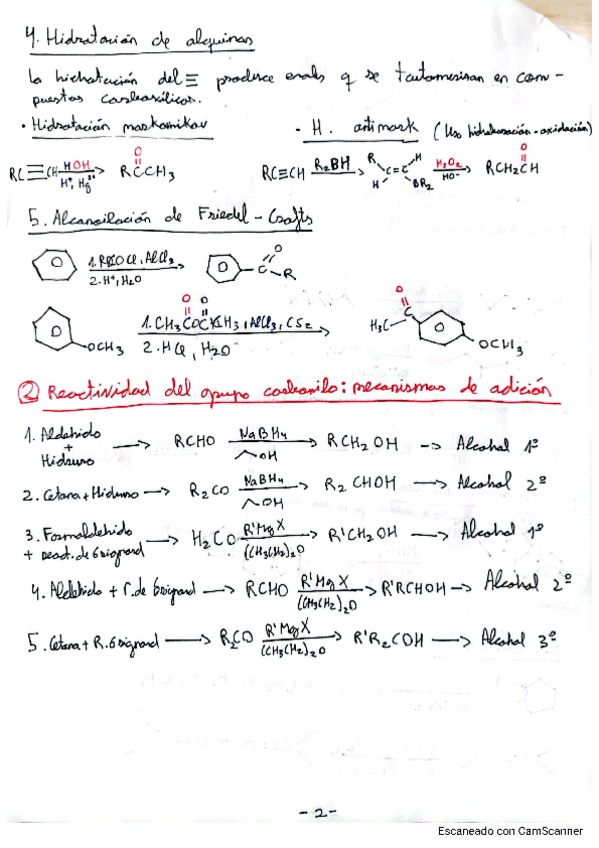 4. Hidratación de alquinos
La hidratación del ≡ produce enoles q se tautomerizan en com-
puestos carbonílicos.
· Hidratación markovnikov - H. antimark (Uso hidroboración-oxidación)
RC≡CH HOH H⁺, Hg²⁺ → RCCH₃ O RC≡CH R₂BH → R H C=C H BR₂ H₂O₂ HO⁻ → RCH₂CH O
5. Alcanoilación de Friedel-Crafts
1. RCOCl, AlCl₃ 2. H⁺, H₂O → C O R
1. CH₃COCCH₃, AlCl₃, CS₂ O O
OCH₃ 2. HCl, H₂O → H₃C C O OCH₃
② Reactividad del grupo carbonilo: mecanismos de adición
1. Aldehido + Hidruro → RCHO NaBH₄ OH → RCH₂OH → Alcohol 1º
2. Cetona + Hidruro → R₂CO NaBH₄ OH → R₂CHOH → Alcohol 2º
3. Formaldehido + react. de Grignard → H₂CO R'MgX (CH₃CH₂)₂O → R'CH₂OH → Alcohol 1º
4. Aldehido + r. de Grignard → RCHO R'MgX (CH₃CH₂)₂O → R'RCHOH → Alcohol 2º
5. Cetona + R. Grignard → R₂CO R'MgX (CH₃CH₂)₂O → R'R₂COH → Alcohol 3º
- 2 -
Escaneado con CamScanner